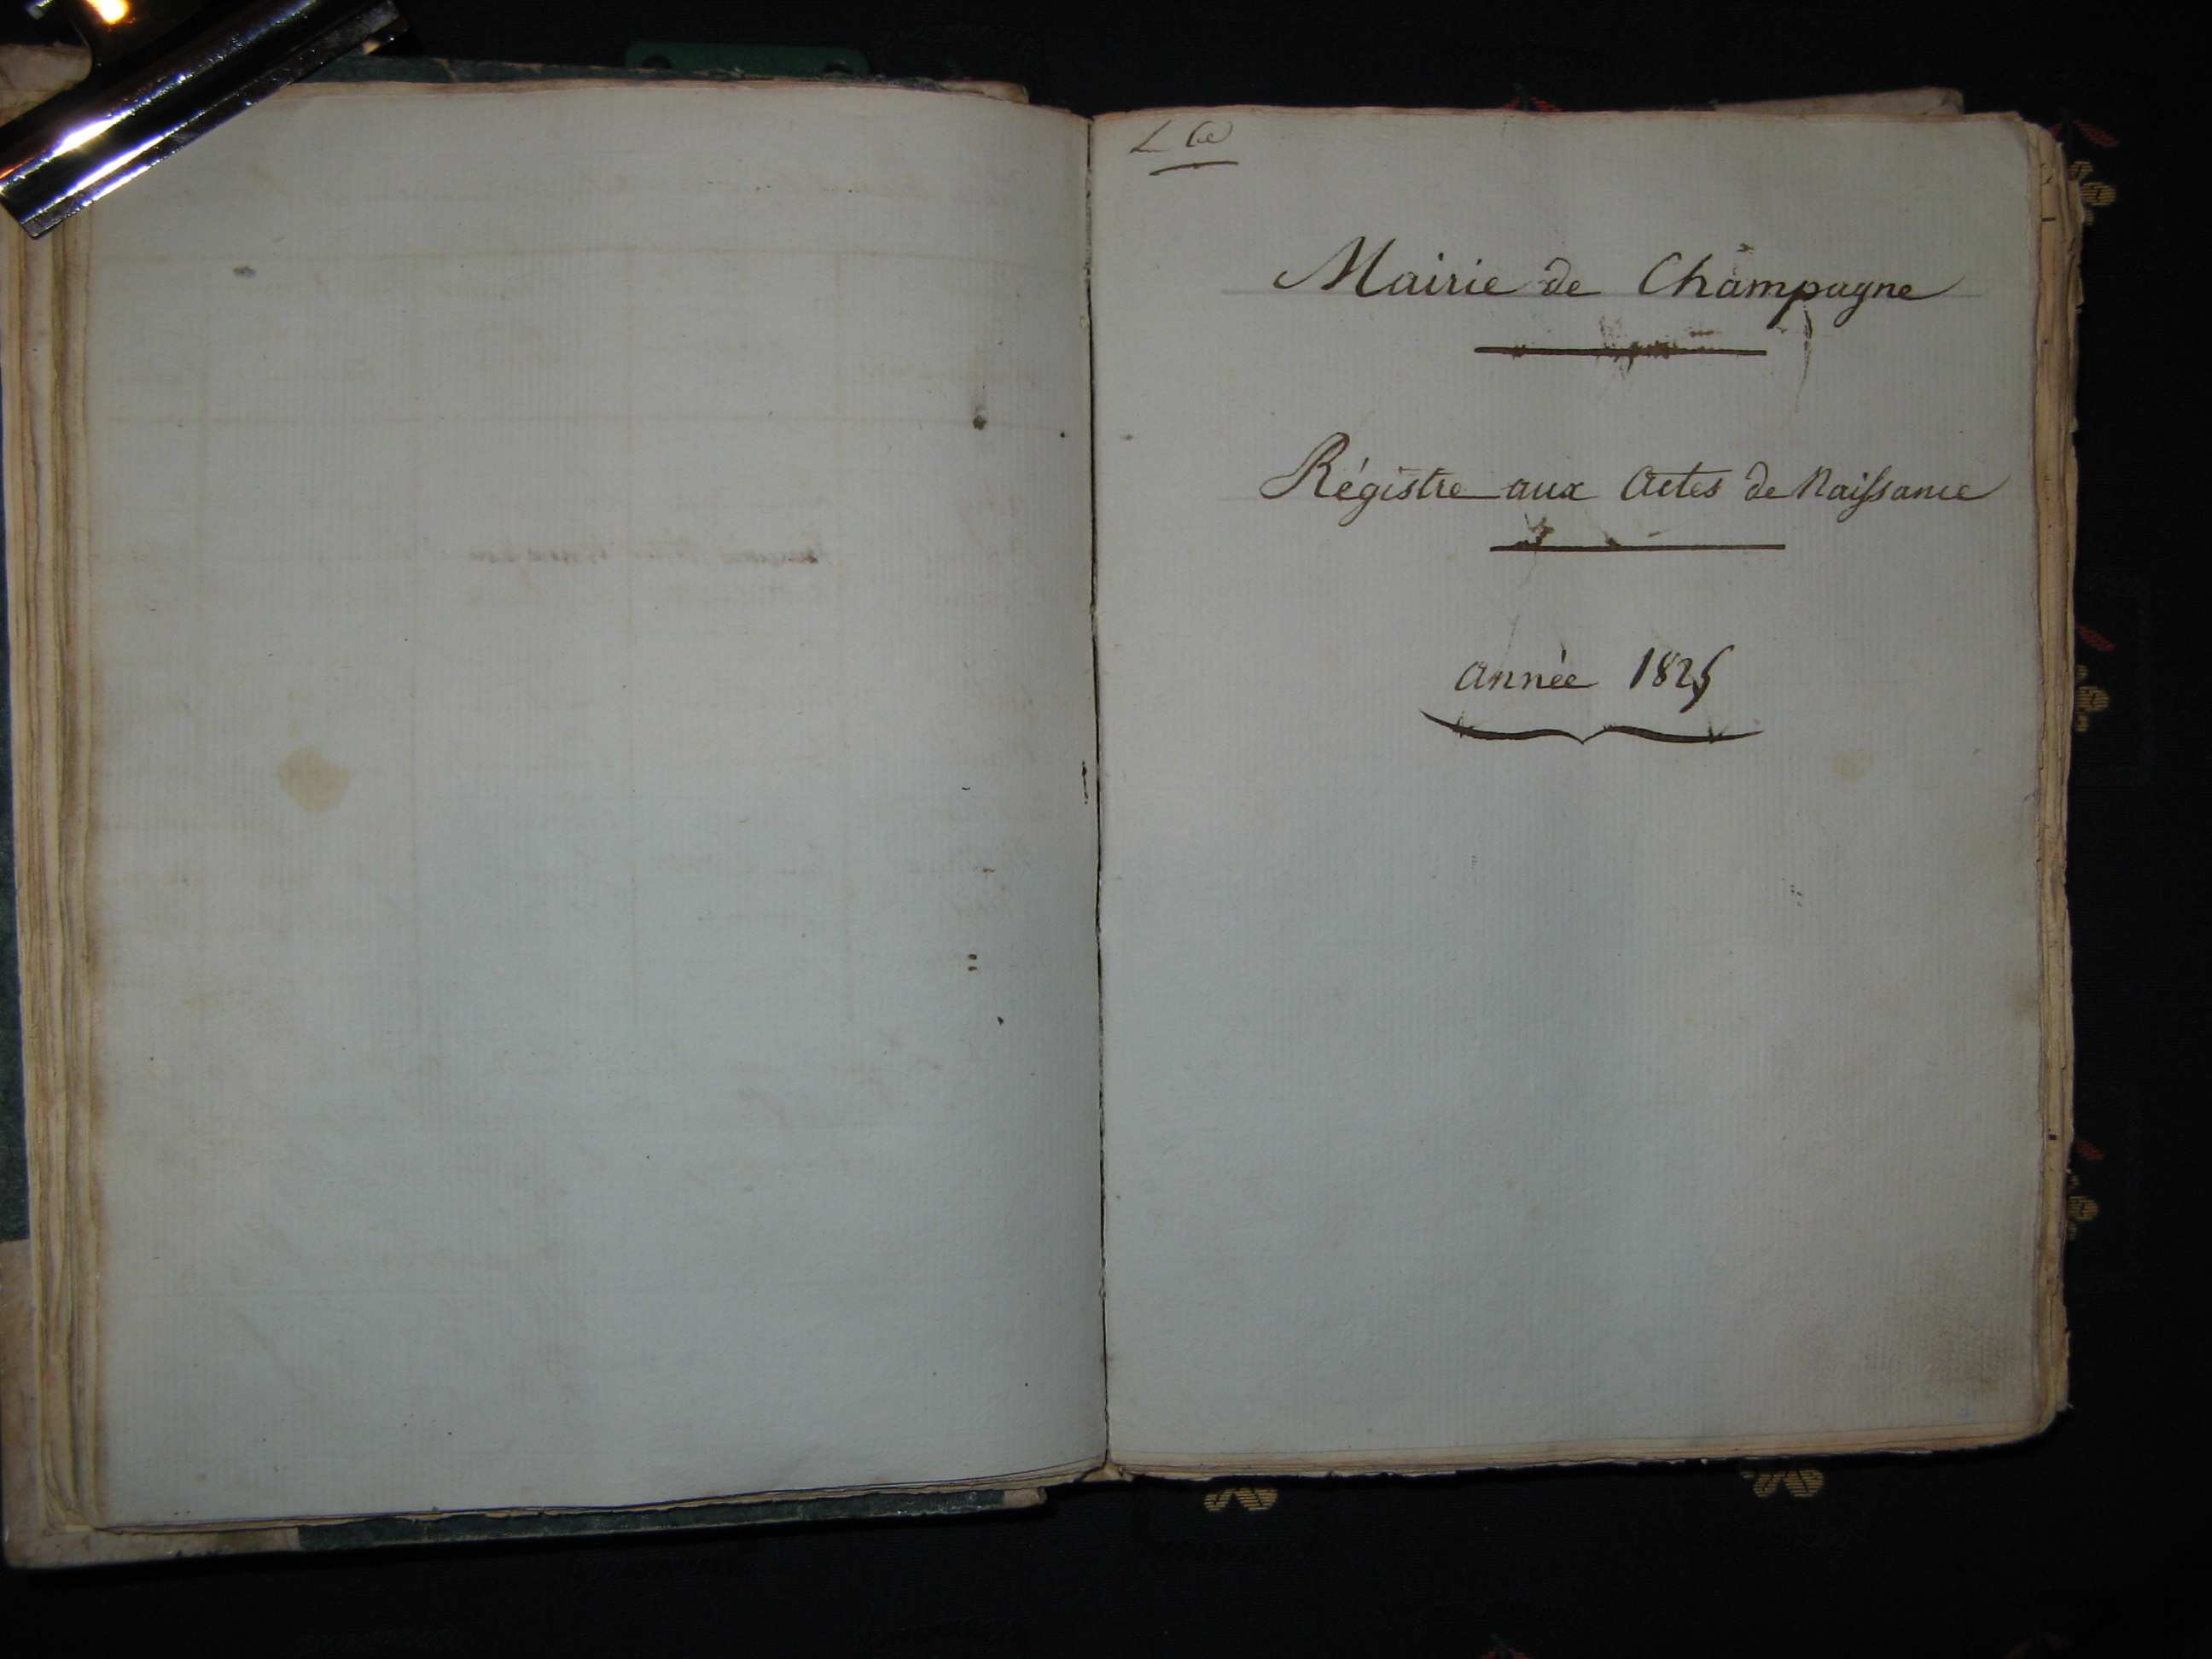 Mairie de Champagne
Régistre aux Actes de Naissance
année 1825